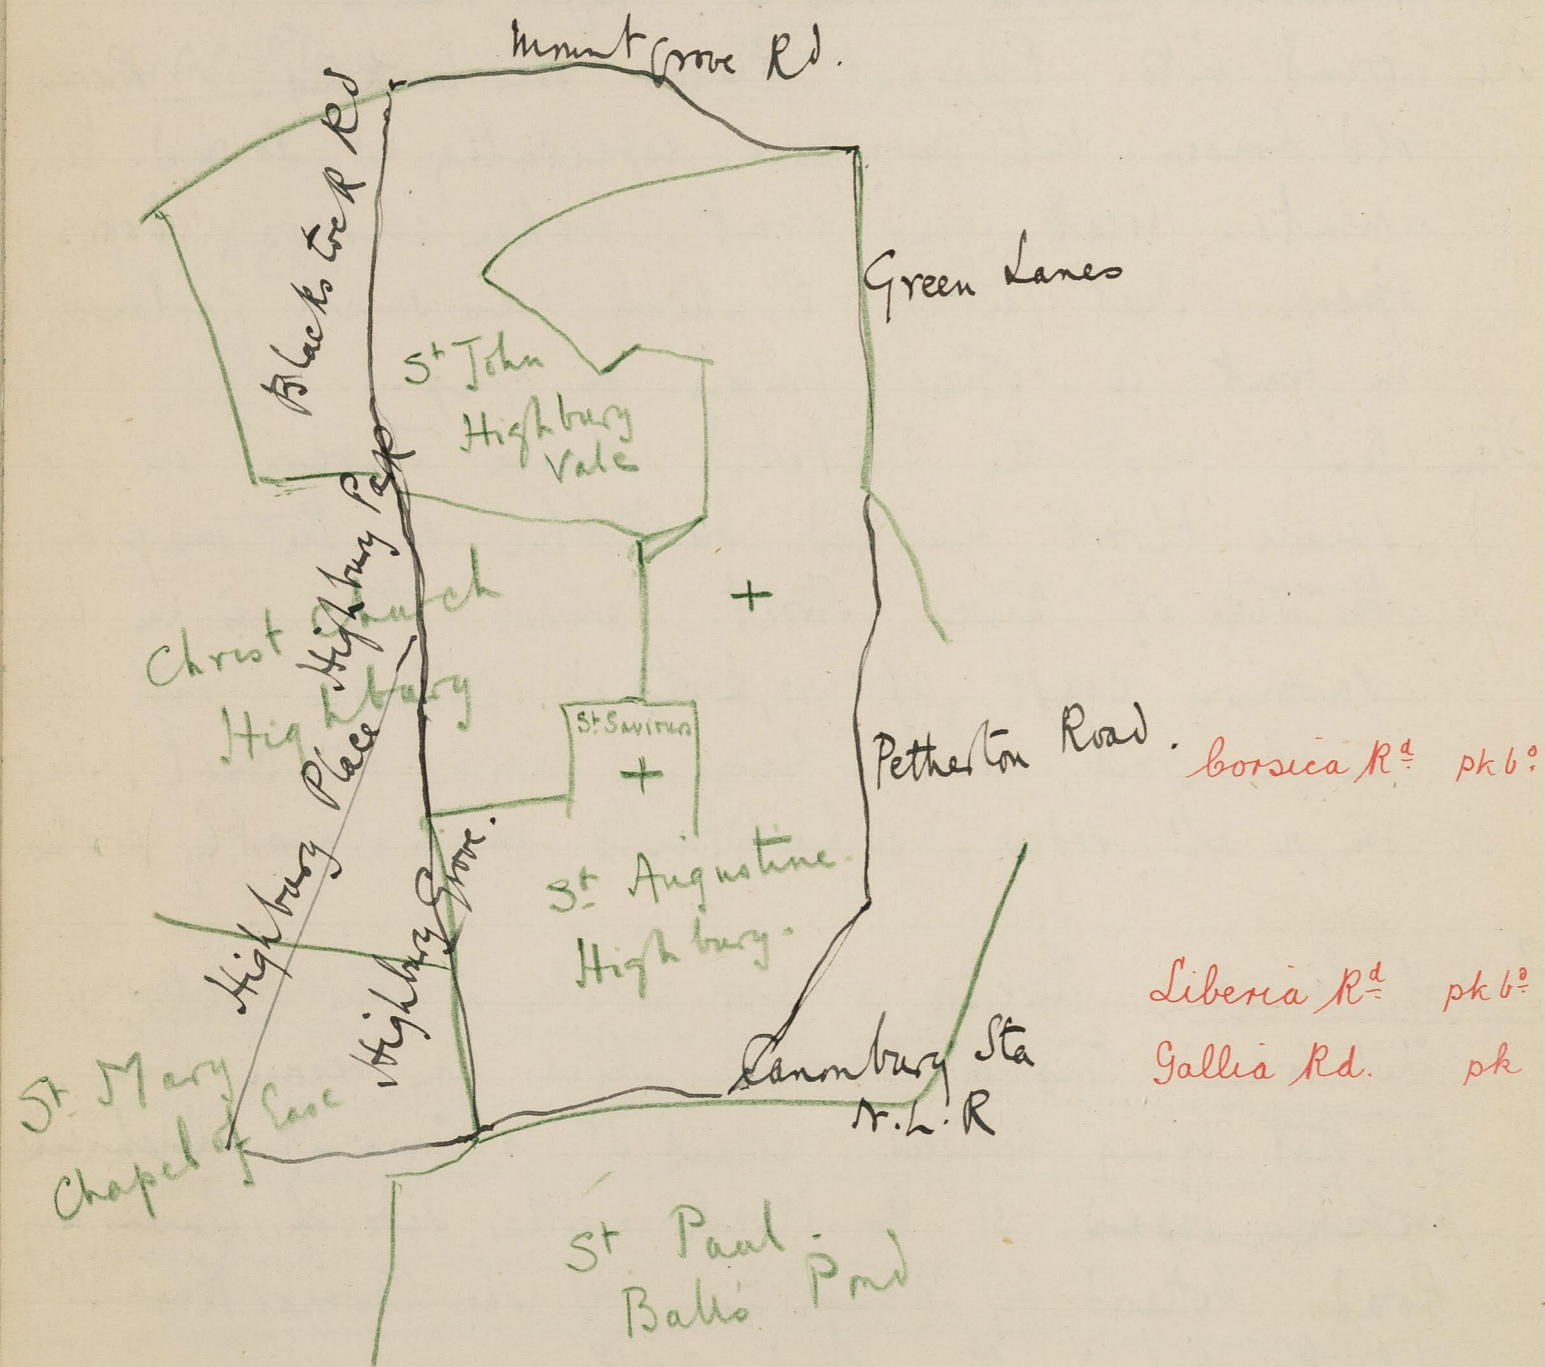 Mountgrove Rd.
Blackstock Rd
Green Lanes
St John
Highbury
Vale
Highbury Park
Christ Church
Highbury
+
St Saviours
+
Petherton Road.
Corsica Rd pk bo
Highbury Place
Highbury Grove.
St Augustine
Highbury.
Liberia Rd pk bo
Gallia Rd. pk
Canonbury Sta
N.L.R
St Mary
Chapel of Ease
St Paul.
Balls Pond